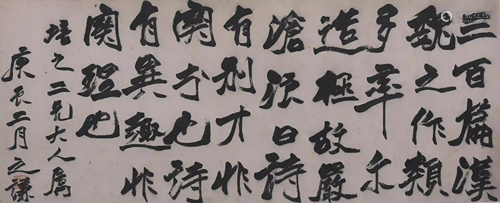 三百篇漢
魏之作類
多率尔
造極故嚴
滄浪曰詩
有別才非
関也詩
有異趣非
関理也
培之二兄大人屬
庚辰二月之謙